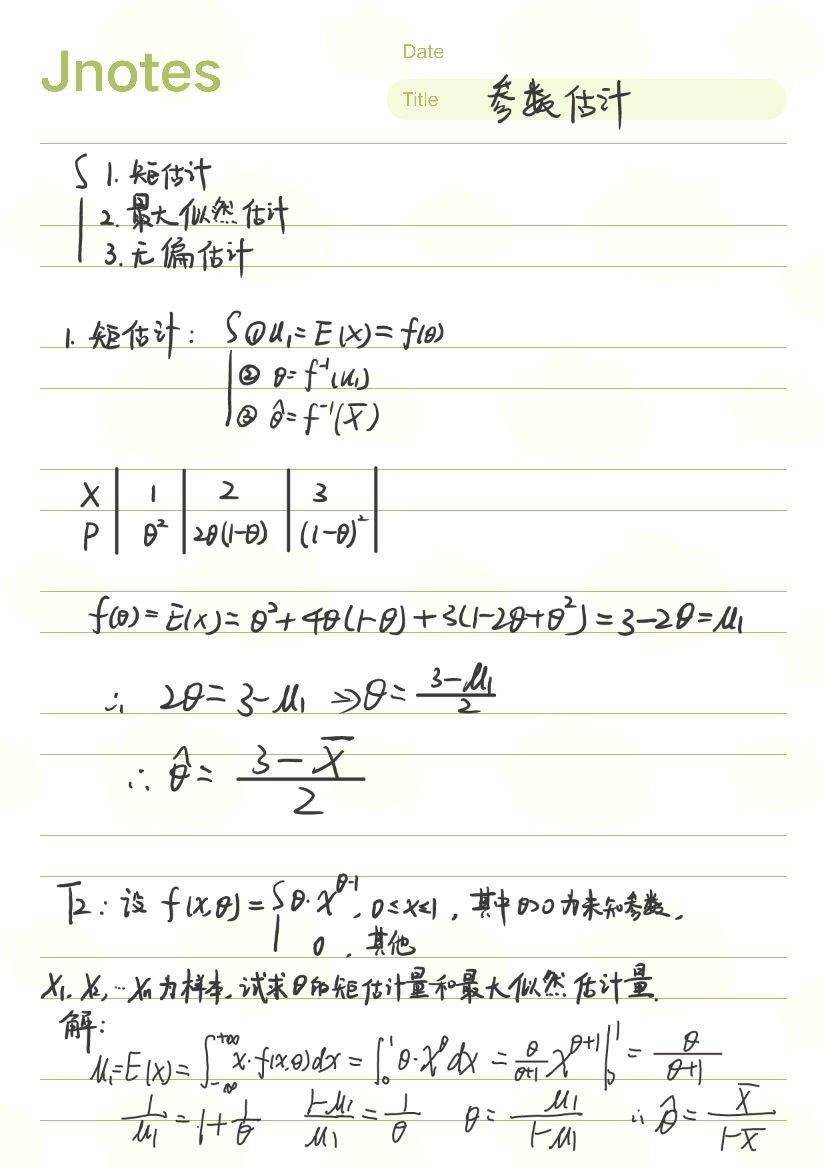 Jnotes
Date
Title 参数估计
{ 1. 矩估计
2. 最大似然估计
3. 无偏估计
1. 矩估计: { ① μ₁ = E(X) = f(θ)
② θ = f⁻¹(μ₁)
③ θ̂ = f⁻¹(X̄)
X | 1 | 2 | 3 |
P | θ² | 2θ(1-θ) | (1-θ)² |
f(θ) = E(X) = θ² + 4θ(1-θ) + 3(1-2θ+θ²) = 3-2θ = μ₁
∴ 2θ = 3-μ₁ ⇒ θ = (3-μ₁)/2
∴ θ̂ = (3-X̄)/2
T2: 设 f(x,θ) = { θ·x^(θ-1), 0≤x≤1, 其中θ>0为未知参数,
0, 其他
X₁, X₂, … Xn为样本, 试求θ的矩估计量和最大似然估计量.
解:
μ₁ = E(X) = ∫_{-∞}^{+∞} x·f(x,θ)dx = ∫_0^1 θ·x^θ dx = θ/(θ+1) x^(θ+1) |_0^1 = θ/(θ+1)
1/μ₁ = 1+1/θ (1-μ₁)/μ₁ = 1/θ θ = μ₁/(1-μ₁) ∴ θ̂ = X̄/(1-X̄)